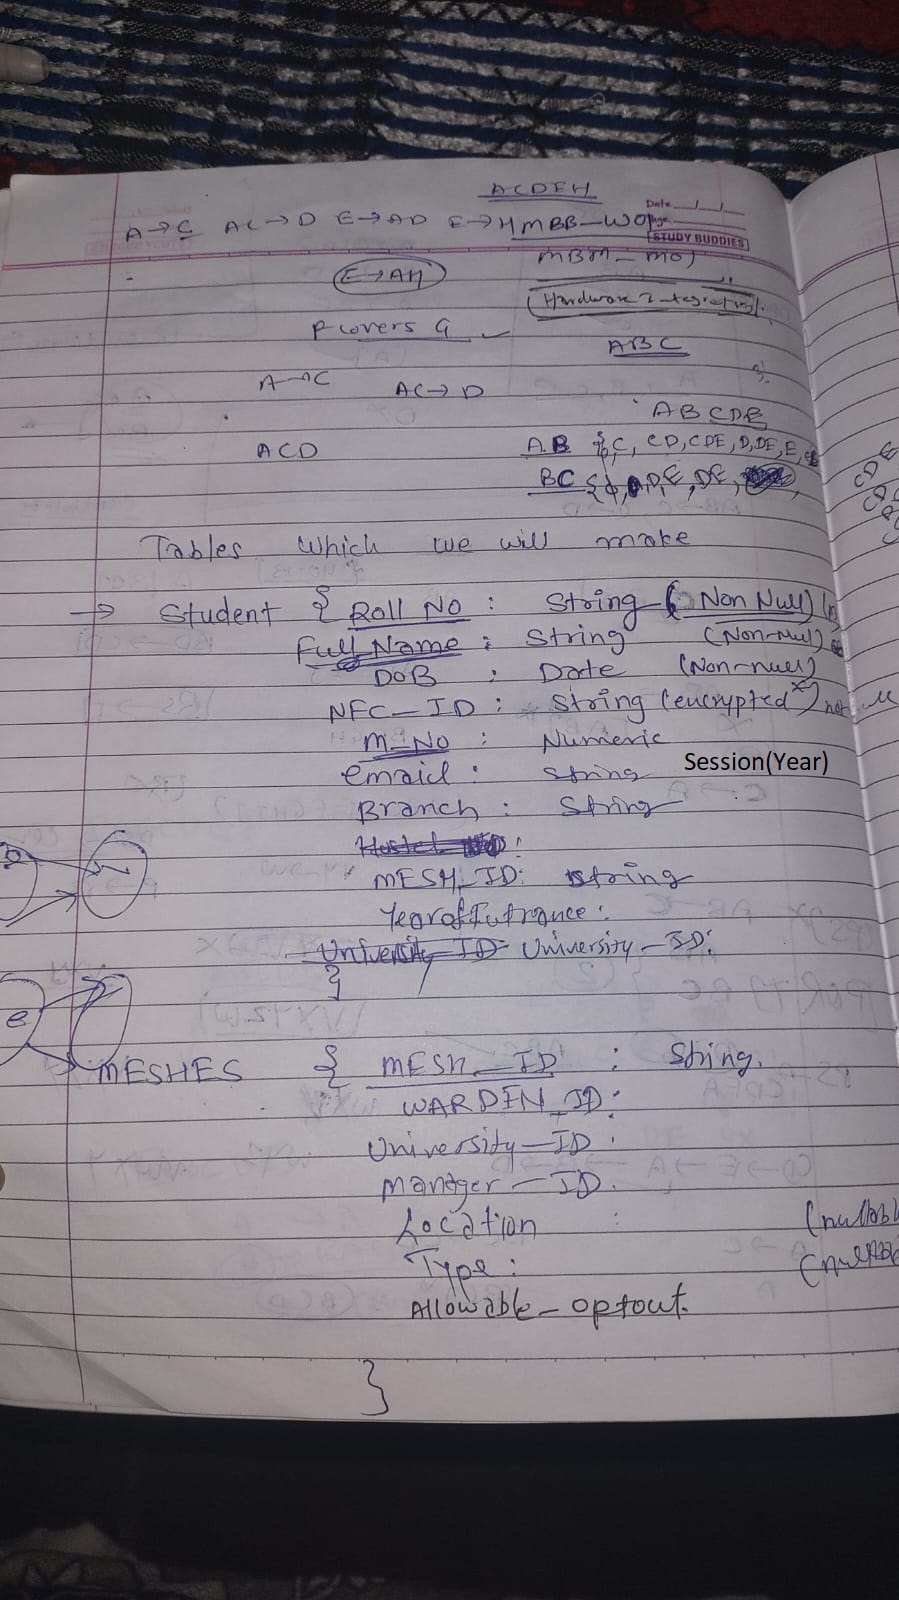 ACDEH
Date
A→C AC→D E→AD E→H MBB-WOP
STUDY BUDDIES
E→AH
(Hardware Integration).
F covers G
ABC
A→C
AC→D
ABCDE
ACD
AB {C, CD, CDE, D, DE, E,
BC {ϕ, D, E, DE,
Tables which we will make
→ Student { Roll No : String (Non Null)
Full Name : String (Non-null)
DOB : Date (Non-null)
NFC_ID : String (encrypted) not null
M_No : Numeric
Session(Year)
email : string
Branch : String
Hostel :
MESH_ID: string
YearofEntrance :
University_ID University_ID:
}
e
MESHES { MESH_ID : String.
WARDEN_ID:
University_ID :
Manager_ID.
Location : (nullabl
Type : (nullab
Allowable_optout.
}
CDE